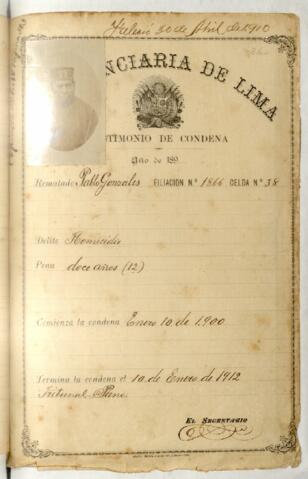 Falleció 30 de Abril de 1910
NCIARIA DE LIMA
TIMONIO DE CONDENA
Año de 189
Rematado Pablo Gonzales FILIACION N.º 1866 CELDA N.º 38
Delito Homicidio
Pena doce años (12)
Comienza la condena Enero 10 de 1.900
Termina la condena el 10 de Enero de 1912
Tribunal Puno
EL SECRETARIO